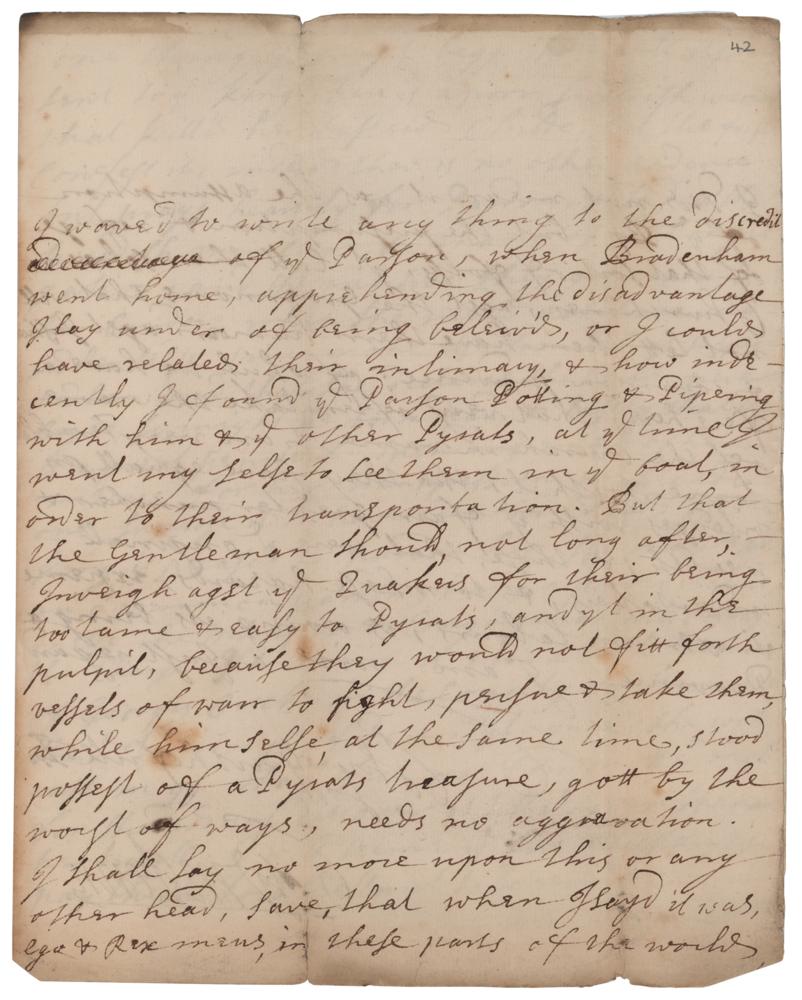 42
I waved to write any thing to the discredit
of ye Parson, when Bradenham
went home, apprehending the disadvantage
I lay under of being beleiv'd, or I could
have related their intimacy, & how inde-
cently I found ye Parson Potting & Pipering
with him & ye other Pyrats, at ye time I
went my selfe to see them in ye boat, in
order to their transportation. But that
the Gentleman should, not long after,
Inveigh agst ye Quakers for their being
too tame & easy to Pyrats, and yt in the
pulpit, because they would not fitt forth
vessels of warr to fight, persue & take them,
while himselfe, at the same time, stood
possest of a Pyrats treasure, gott by the
worst of ways, needs no aggravation.
I shall say no more upon this or any
other head, save, that when I sayd it was,
ego & Rex meus, in these parts of the world,